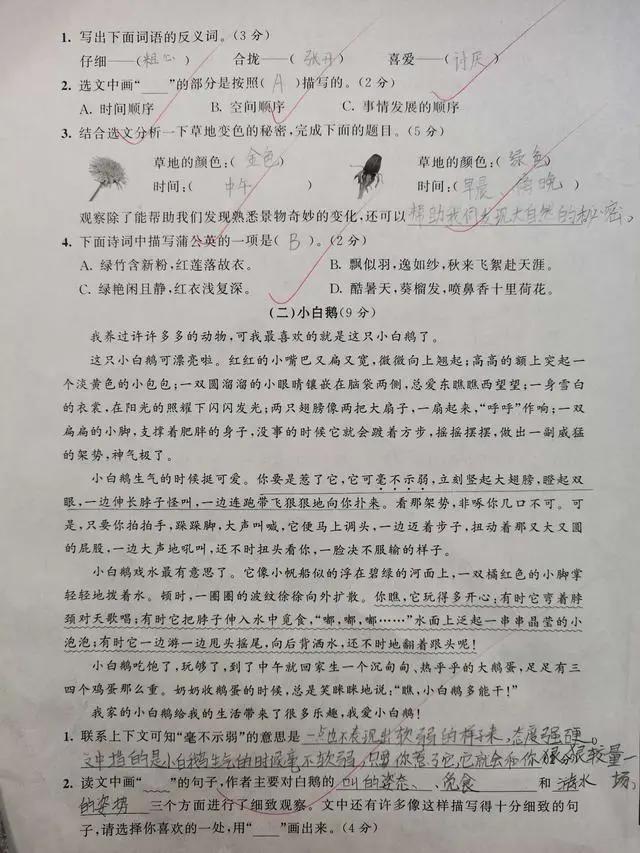 1. 写出下面词语的反义词。(3分)
仔细——(粗心) 合拢——(张开) 喜爱——(讨厌)
2. 选文中画“___”的部分是按照(A)描写的。(2分)
A. 时间顺序 B. 空间顺序 C. 事情发展的顺序
3. 结合选文分析一下草地变色的秘密,完成下面的题目。(5分)
草地的颜色:(金色) 草地的颜色:(绿色)
时间:(中午) 时间:(早晨、傍晚)
观察除了能帮助我们发现熟悉景物奇妙的变化,还可以帮助我们发现大自然的秘密。
4. 下面诗词中描写蒲公英的一项是(B)。(2分)
A. 绿竹含新粉,红莲落故衣。 B. 飘似羽,逸如纱,秋来飞絮赴天涯。
C. 绿艳闲且静,红衣浅复深。 D. 酷暑天,葵榴发,喷鼻香十里荷花。
(二)小白鹅(9分)
我养过许许多多的动物,可我最喜欢的就是这只小白鹅了。
这只小白鹅可漂亮啦。红红的小嘴巴又扁又宽,微微向上翘起;高高的额上突起一
个淡黄色的小包包;一双圆溜溜的小眼睛镶嵌在脑袋两侧,总爱东瞧瞧西望望;一身雪白
的衣裳,在阳光的照耀下闪闪发光;两只翅膀像两把大扇子,一扇起来,“呼呼”作响;一双
扁扁的小脚,支撑着肥胖的身子,没事的时候它就会踱着方步,摇摇摆摆,做出一副威猛
的架势,神气极了。
小白鹅生气的时候挺可爱。你要是惹了它,它可毫不示弱,立刻竖起大翅膀,瞪起双
眼,一边伸长脖子怪叫,一边连跑带飞狠狠地向你扑来。看那架势,非啄你几口不可。可
是,只要你拍拍手,跺跺脚,大声叫喊,它便马上调头,一边迈着步子,扭动着那又大又圆
的屁股,一边大声地吼叫,还不时扭头看你,一脸决不服输的样子。
小白鹅戏水最有意思了。它像小帆船似的浮在碧绿的河面上,一双橘红色的小脚掌
轻轻地拨着水。顿时,一圈圈的波纹徐徐向外扩散。你瞧,它玩得多开心;有时它弯着脖
颈对天歌唱;有时它把脖子伸入水中觅食,“嘟,嘟,嘟……”水面上泛起一串串晶莹的小
泡泡;有时它一边游一边甩头摇尾,向后背洒水,还不时地翻着跟头呢!
小白鹅吃饱了,玩够了,到了中午就回家生一个沉甸甸、热乎乎的大鹅蛋,足足有三
四个鸡蛋那么重。奶奶收鹅蛋的时候,总是笑眯眯地说:“瞧,小白鹅多能干!”
我家的小白鹅给我的生活带来了很多乐趣,我爱小白鹅!
1. 联系上下文可知“毫不示弱”的意思是一点也不表现出软弱的样子来,态度强硬。
文中指的是小白鹅生气的时候毫不软弱,只要你惹了它,它就会和你狠狠较量一
场。
2. 读文中画“﹏﹏”的句子,作者主要对白鹅的叫的姿态、觅食和游水
的姿势三个方面进行了细致观察。文中还有许多像这样描写得十分细致的句
子,请选择你喜欢的一处,用“___”画出来。(4分)